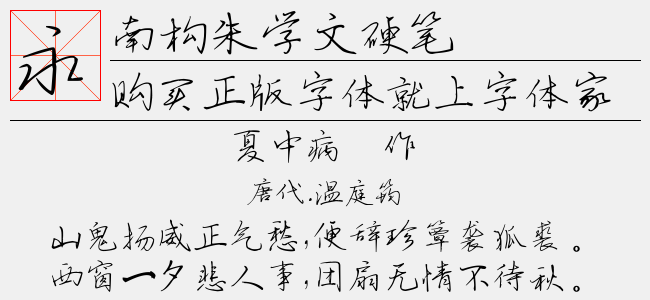 永
南构朱学文硬笔
购买正版字体就上字体家
夏中病 作
唐代.温庭筠
山鬼扬威正气愁,便辞珍簟袭狐裘。
西窗一夕悲人事,团扇无情不待秋。